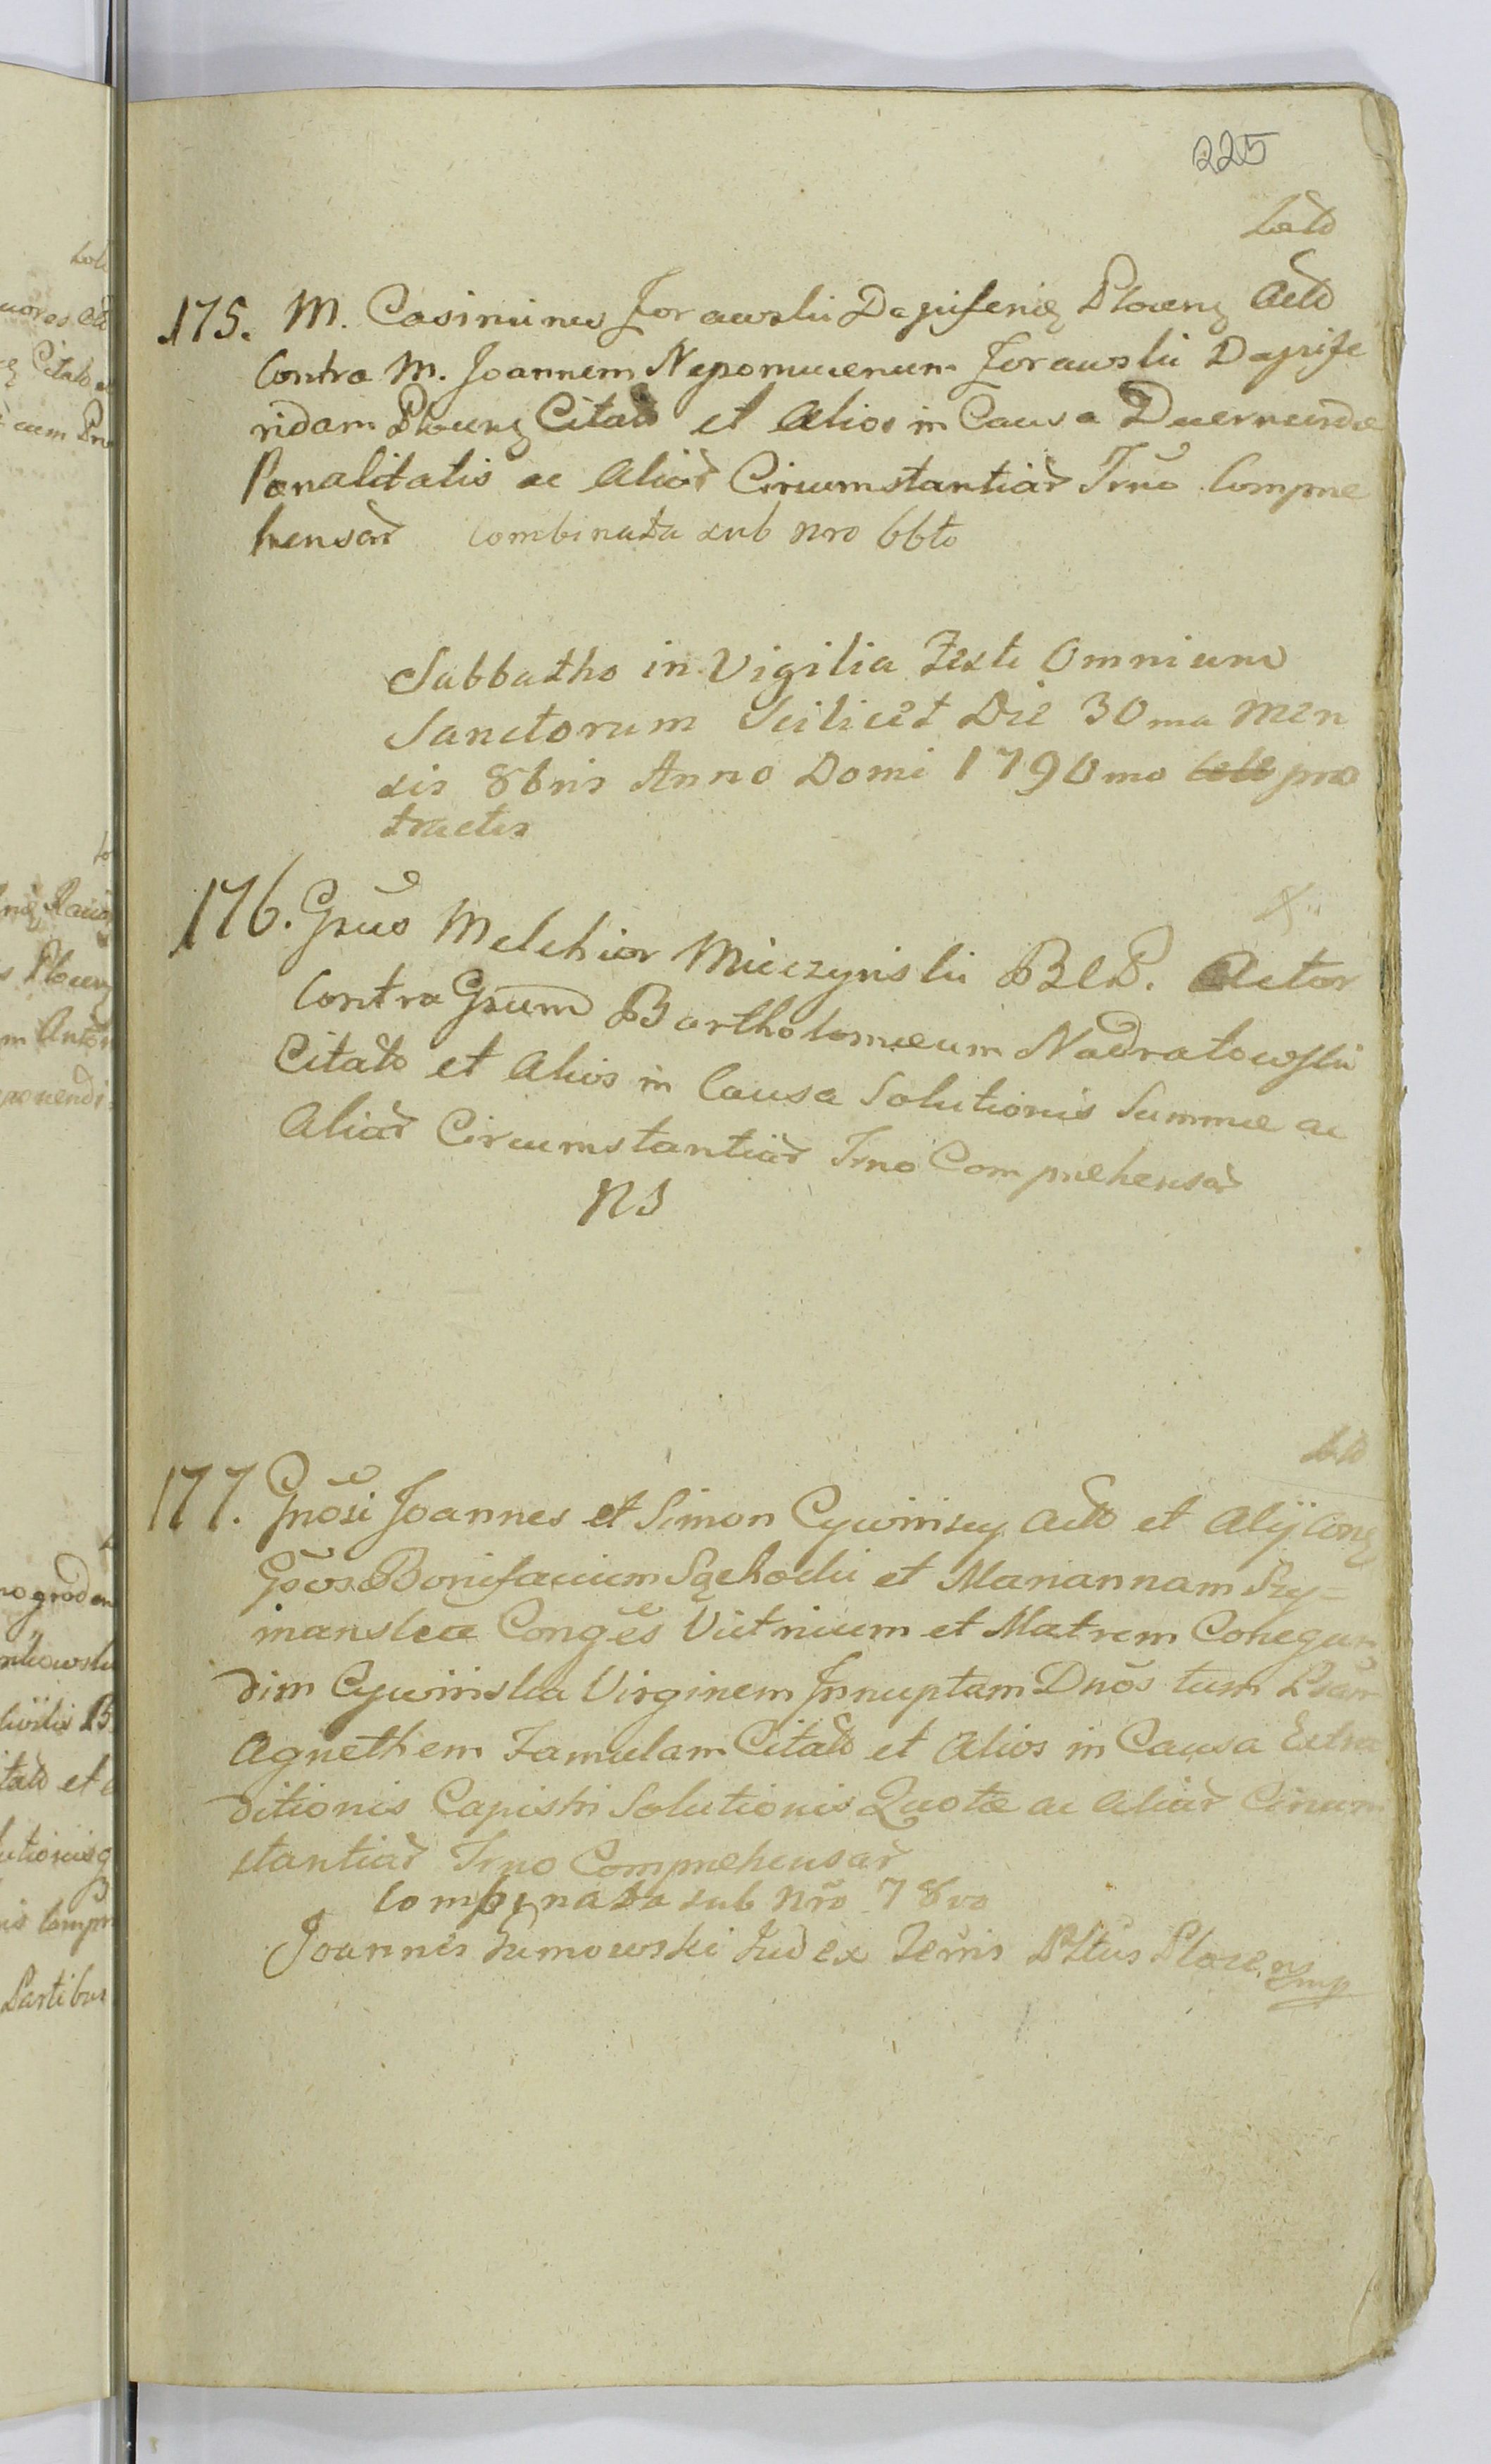 225
175. M. Casimirus Jorawski Dapiferid Plocens Actō
Contra M. Joannem Nepomucenum Jorawski Dapife
ridam Plocens Citatō et Alios in Causa Decernendæ
Pœnalitatis ac Aliar̄ Circumstantiar̄ Trno Compræ
hensar̄ combinata sub nro 66to
Sabbatho in Vigilia Festi Omnium
Sanctorum Scilicet Die 30ma Men
sis 8bris Anno Domi 1790mo pro
tractis
176. Gnsus Melchior Miczynski BCP. Actor
Contra Gnsum Bartholomæum Nadratowski
Citatō et Alios in Causa Solutionis Summæ ac
Aliar̄ Circumstantiar̄ Trno Comprehensar̄
NS
177. Gnōsi Joannes et Simon Cywinscy Actō et Alij Con
Gnsos Bonifacium Sąchocki et Mariannam Szy=
manska Congēs Vitricum et Matrem Conegun
dim Cywinska Virginem Innuptam Dnōs tum
Agnethem Famulam Citatō et Alios in Causa Extra
ditionis Capistri Solutionis Quotæ ac Aliar̄ Circum
stantiar̄ Trno Comprehensar̄
Combinata sub nrō 78vo
Joannes Sumowski Judex Terris Pltus Plocens mp